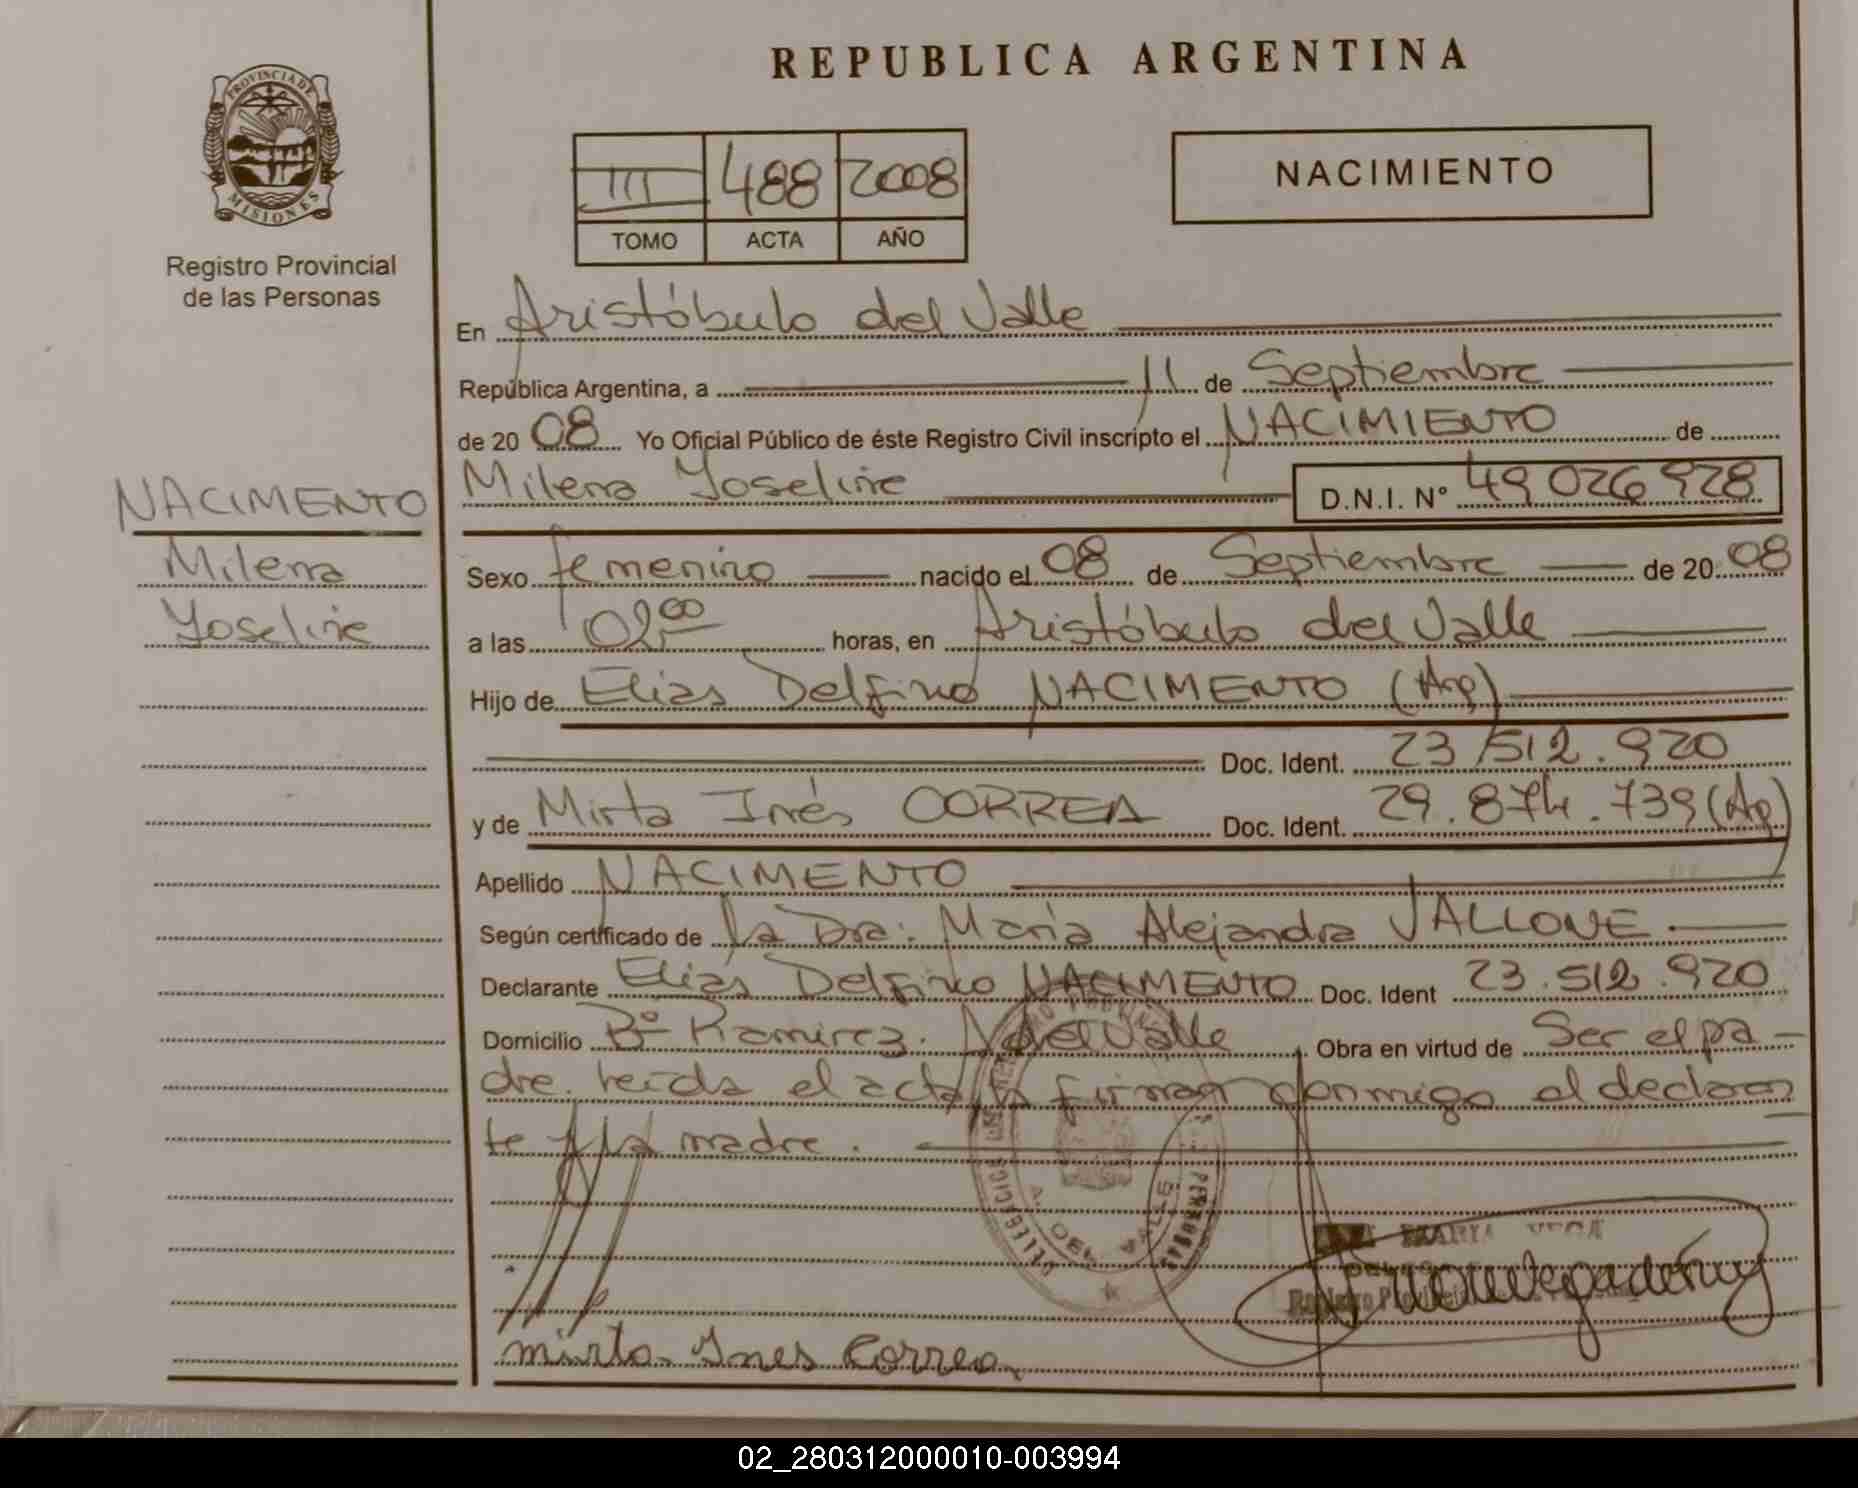 REPUBLICA ARGENTINA
PROVINCIA DE
MISIONES
Registro Provincial
de las Personas
III 488 2008
TOMO ACTA AÑO
NACIMIENTO
En Aristóbulo del Valle
República Argentina, a 11 de Septiembre
de 20 08 Yo Oficial Público de éste Registro Civil inscripto el NACIMIENTO de
Milena Yoseline D.N.I. N° 49 026 928
NACIMENTO
Milena
Yoseline
Sexo femenino nacido el 08 de Septiembre de 20 08
a las 02,00 horas, en Aristóbulo del Valle
Hijo de Elias Delfino NACIMENTO (Arg)
Doc. Ident. 23.512.920
y de Mirta Inés CORREA Doc. Ident. 29.874.739 (Arg)
Apellido NACIMENTO
Según certificado de la Dra: María Alejandra VALLONE.
Declarante Elias Delfino NACIMENTO Doc. Ident 23.512.920
Domicilio Bº Ramirez. A del Valle Obra en virtud de Ser el pa-
dre. leída el acta la firman conmigo el declaran
te y la madre.
A. DEL VALLE
MARIA VEGA
Registro Provincial
mirta Ines Correa
02_280312000010-003994